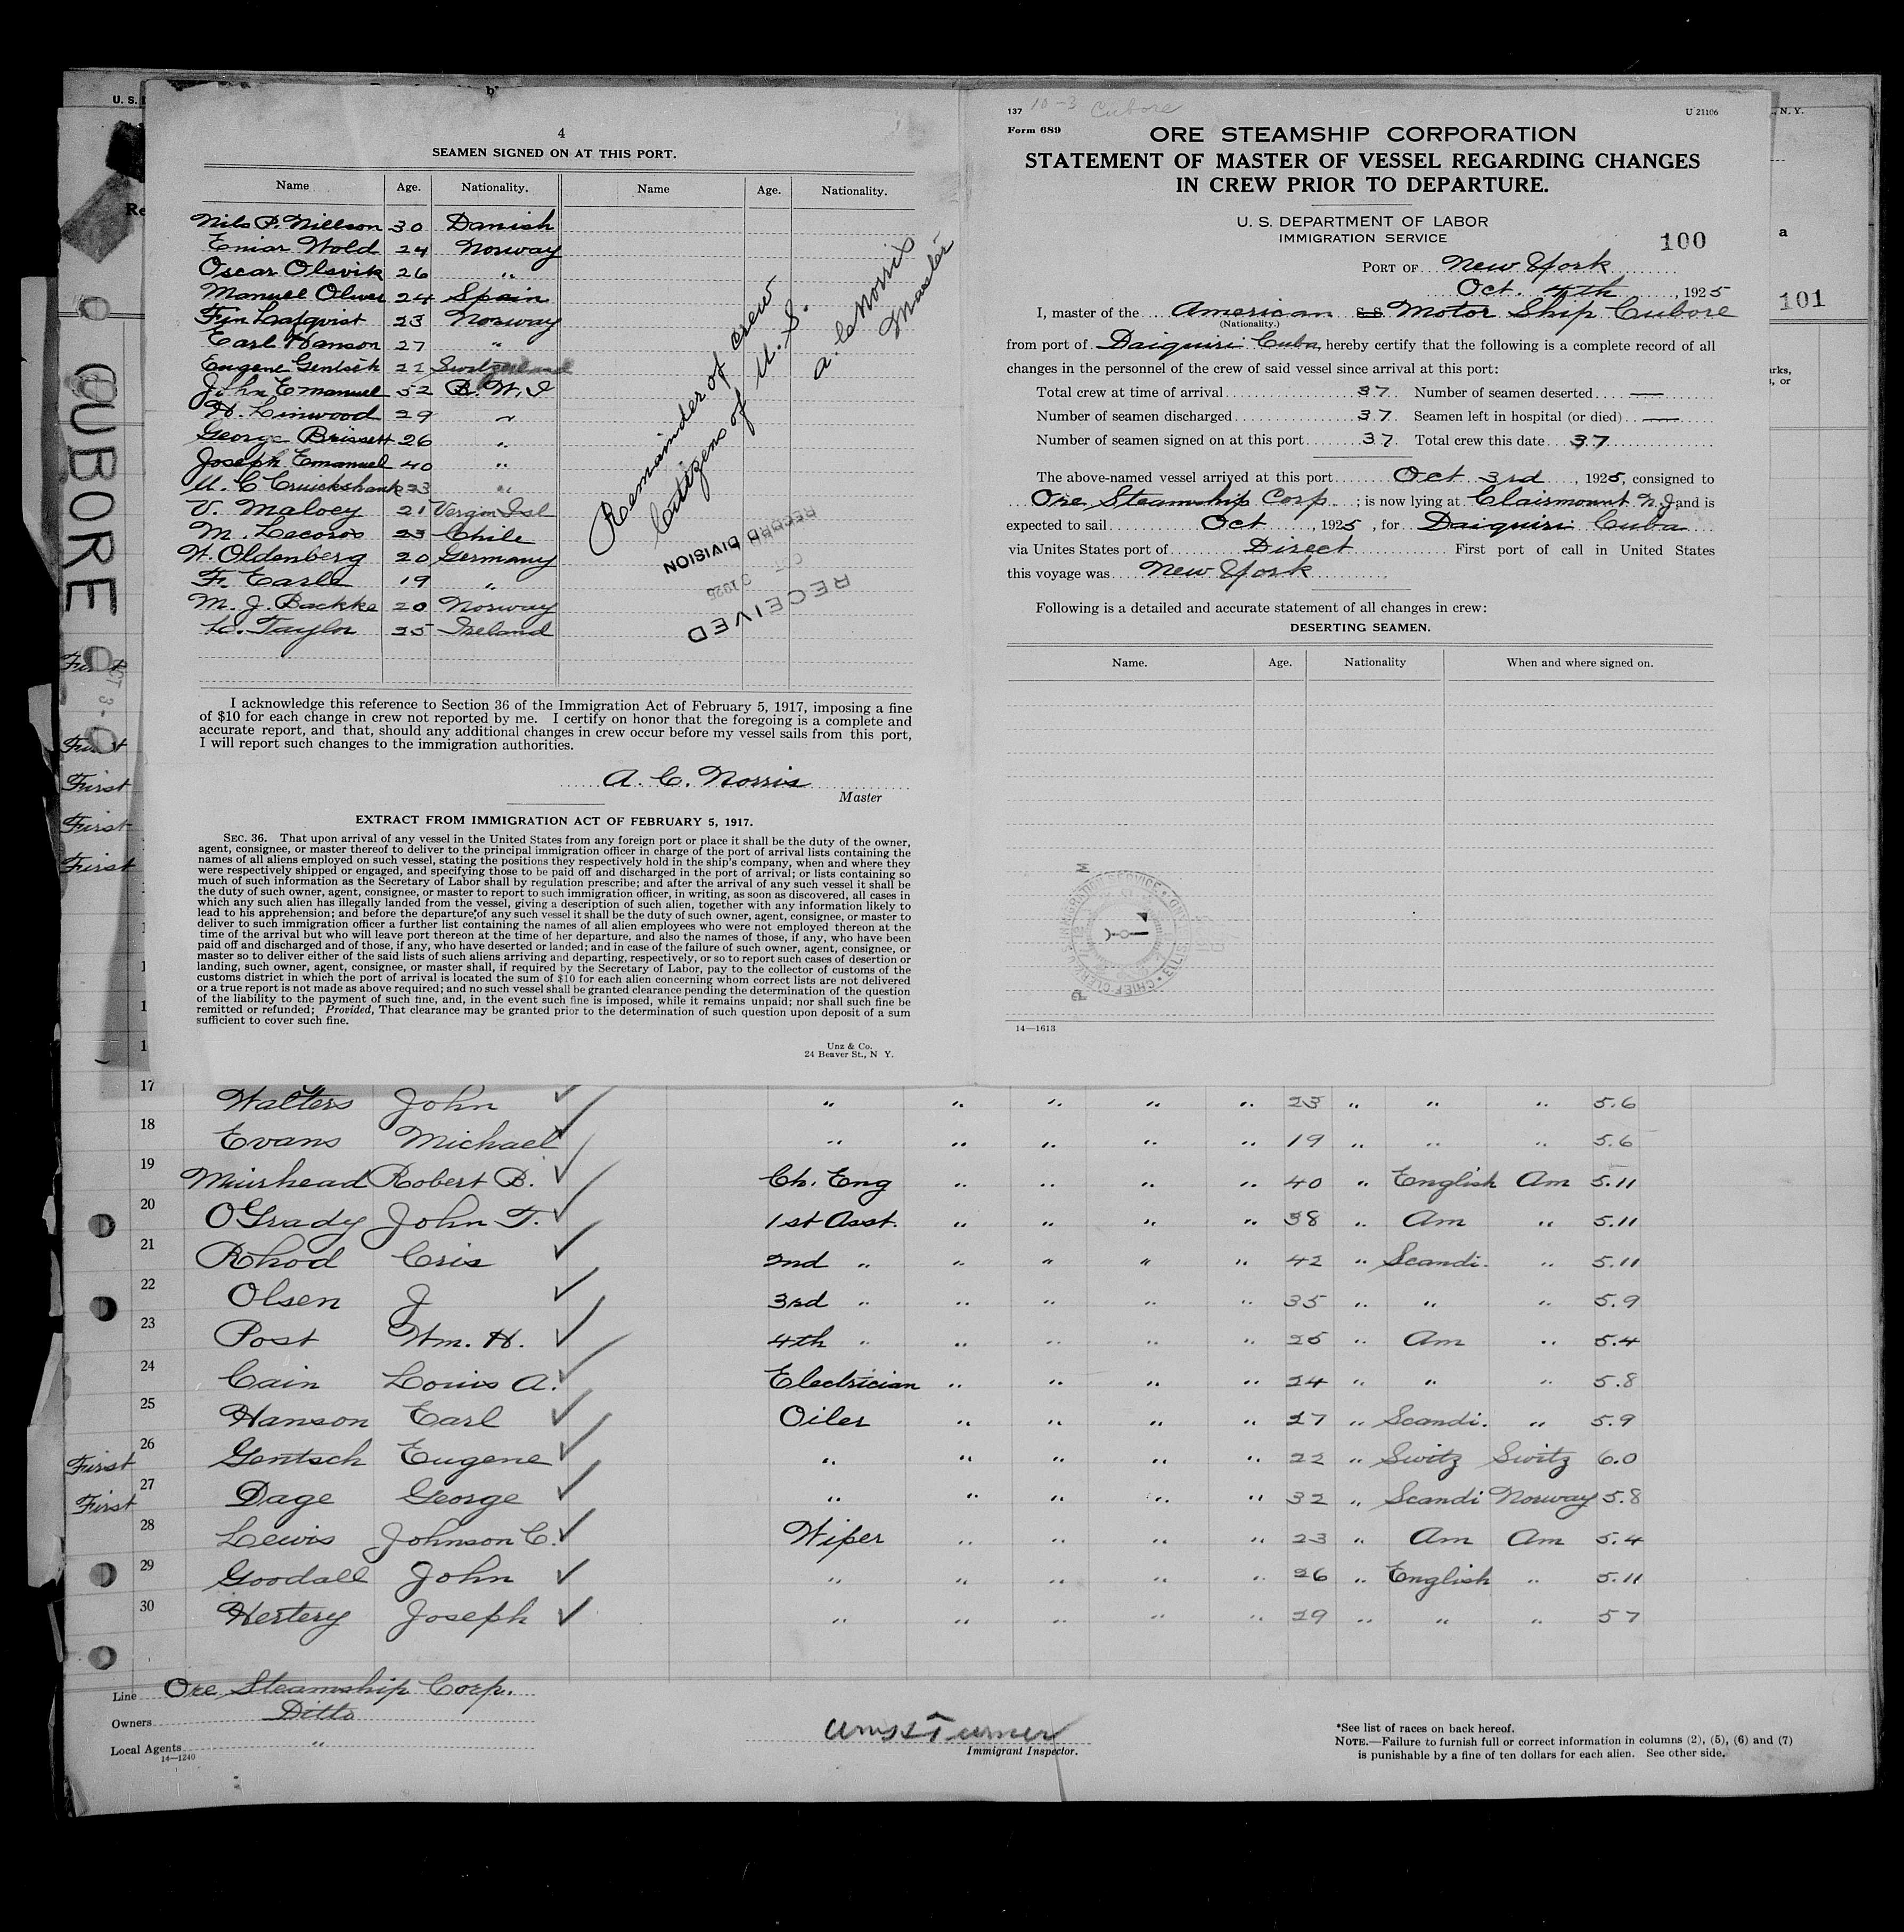 4
SEAMEN SIGNED ON AT THIS PORT.
Name Age. Nationality. Name Age. Nationality.
Nils P. Nillson 30 Danish
Eniar Wold 24 Norway
Oscar Olsvik 26 "
Manuel Oliver 24 Spain
Fin Lafqvist 23 Norway
Earl Hanson 27 "
Eugene Gentsch 22 Switzerland
John Emanuel 52 B.W.I
H. Linwood 29 "
George Brissett 26 "
Joseph Emanuel 40 "
U. C Cruickshank 23 "
V. Malvey 21 Vergon Isl
M. Lecoros 23 Chile
W. Oldenberg 20 Germany
F. Earle 19 "
M. J. Backke 20 Norway
Taylor 25 Ireland
Remainder of crew
Citizens of U. S.
A. C. Norris
Master
RECORD DIVISION
OCT 1925
RECEIVED
I acknowledge this reference to Section 36 of the Immigration Act of February 5, 1917, imposing a fine
of $10 for each change in crew not reported by me. I certify on honor that the foregoing is a complete and
accurate report, and that, should any additional changes in crew occur before my vessel sails from this port,
I will report such changes to the immigration authorities.
A. C. Norris
Master
EXTRACT FROM IMMIGRATION ACT OF FEBRUARY 5, 1917.
SEC. 36. That upon arrival of any vessel in the United States from any foreign port or place it shall be the duty of the owner,
agent, consignee, or master thereof to deliver to the principal immigration officer in charge of the port of arrival lists containing the
names of all aliens employed on such vessel, stating the positions they respectively hold in the ship's company, when and where they
were respectively shipped or engaged, and specifying those to be paid off and discharged in the port of arrival; or lists containing so
much of such information as the Secretary of Labor shall by regulation prescribe; and after the arrival of any such vessel it shall be
the duty of such owner, agent, consignee, or master to report to such immigration officer, in writing, as soon as discovered, all cases in
which any such alien has illegally landed from the vessel, giving a description of such alien, together with any information likely to
lead to his apprehension; and before the departure of any such vessel it shall be the duty of such owner, agent, consignee, or master to
deliver to such immigration officer a further list containing the names of all alien employees who were not employed thereon at the
time of the arrival but who will leave port thereon at the time of her departure, and also the names of those, if any, who have been
paid off and discharged and of those, if any, who have deserted or landed; and in case of the failure of such owner, agent, consignee, or
master so to deliver either of the said lists of such aliens arriving and departing, respectively, or so to report such cases of desertion or
landing, such owner, agent, consignee, or master shall, if required by the Secretary of Labor, pay to the collector of customs of the
customs district in which the port of arrival is located the sum of $10 for each alien concerning whom correct lists are not delivered
or a true report is not made as above required; and no such vessel shall be granted clearance pending the determination of the question
of the liability to the payment of such fine, and, in the event such fine is imposed, while it remains unpaid; nor shall such fine be
remitted or refunded; Provided, That clearance may be granted prior to the determination of such question upon deposit of a sum
sufficient to cover such fine.
Unz & Co.
24 Beaver St., N Y.
137 10-3 Cubore U 21106
Form 689
ORE STEAMSHIP CORPORATION
STATEMENT OF MASTER OF VESSEL REGARDING CHANGES
IN CREW PRIOR TO DEPARTURE.
U. S. DEPARTMENT OF LABOR
IMMIGRATION SERVICE
100
PORT OF New York
Oct. 4th, 1925
I, master of the American S. S. Motor Ship Cubore
(Nationality.)
from port of Daiquiri Cuba, hereby certify that the following is a complete record of all
changes in the personnel of the crew of said vessel since arrival at this port:
Total crew at time of arrival 37 Number of seamen deserted —
Number of seamen discharged 37 Seamen left in hospital (or died) —
Number of seamen signed on at this port 37 Total crew this date 37
The above-named vessel arrived at this port Oct 3rd, 1925, consigned to
Ore Steamship Corp.; is now lying at Clairmount N.J and is
expected to sail Oct, 1925, for Daiquiri Cuba
via Unites States port of Direct First port of call in United States
this voyage was New York
Following is a detailed and accurate statement of all changes in crew:
DESERTING SEAMEN.
Name. Age. Nationality When and where signed on.
14—1613
U. S.
N. Y.
a
101
CUBORE
OCT 3-
First
First
First
First
First
17 Walters John " " " " " 23 " " " 5.6
18 Evans Michael " " " " " 19 " " " 5.6
19 Muirhead Robert B. Ch. Eng " " " " 40 " English Am 5.11
20 OGrady John T. 1st Asst. " " " " 38 " Am " 5.11
21 Rhod Cris 2nd " " " " " 42 " Scandi. " 5.11
22 Olsen J 3rd " " " " " 35 " " " 5.9
23 Post Wm. H. 4th " " " " " 25 " Am " 5.4
24 Cain Louis A. Electrician " " " " 24 " " " 5.8
25 Hanson Earl Oiler " " " " 27 " Scandi. " 5.9
First 26 Gentsch Eugene " " " " " 22 " Switz Switz 6.0
First 27 Dage George " " " " " 32 " Scandi Norway 5.8
28 Lewis Johnson C. Wiper " " " " 23 " Am Am 5.4
29 Goodall John " " " " " 26 " English " 5.11
30 Hertery Joseph " " " " " 29 " " " 57
Line Ore Steamship Corp.
Owners Ditto
Local Agents "
14—1240
Turner
Immigrant Inspector.
*See list of races on back hereof.
NOTE.—Failure to furnish full or correct information in columns (2), (5), (6) and (7)
is punishable by a fine of ten dollars for each alien. See other side.